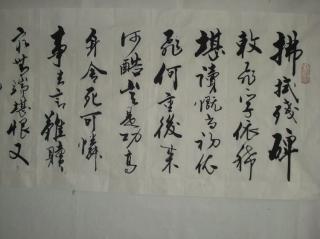 拂拭残碑
敕飞字依稀
堪读慨当初依
飞何重后来
何酷岂是功高
身合死可怜
事去言难赎
最无端堪恨又